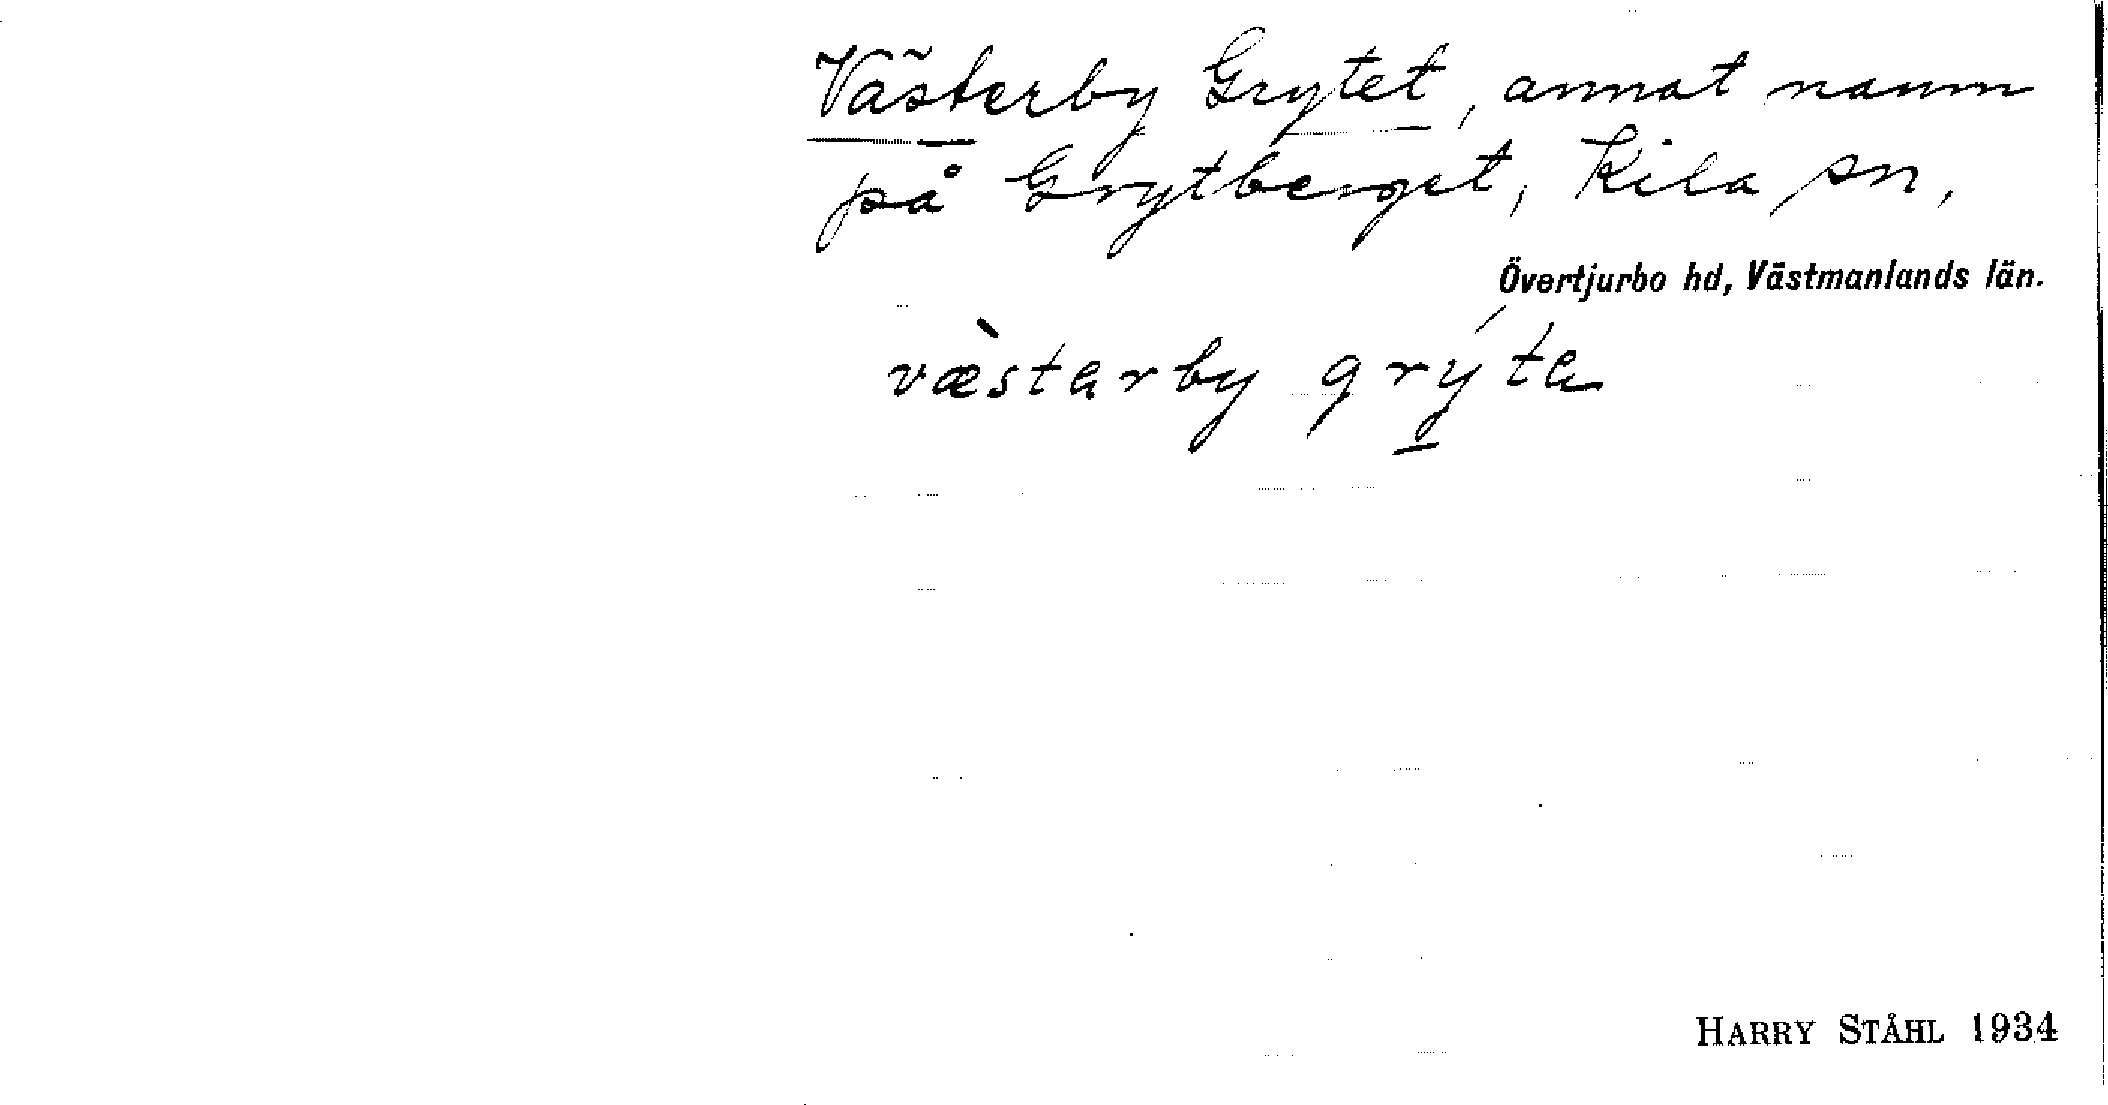 Västerby Grytet, annat namn
på Grytberget, Kila sn,
Övertjurbo hd, Västmanlands län.
væ̀starby grýta
HARRY STÅHL 1934